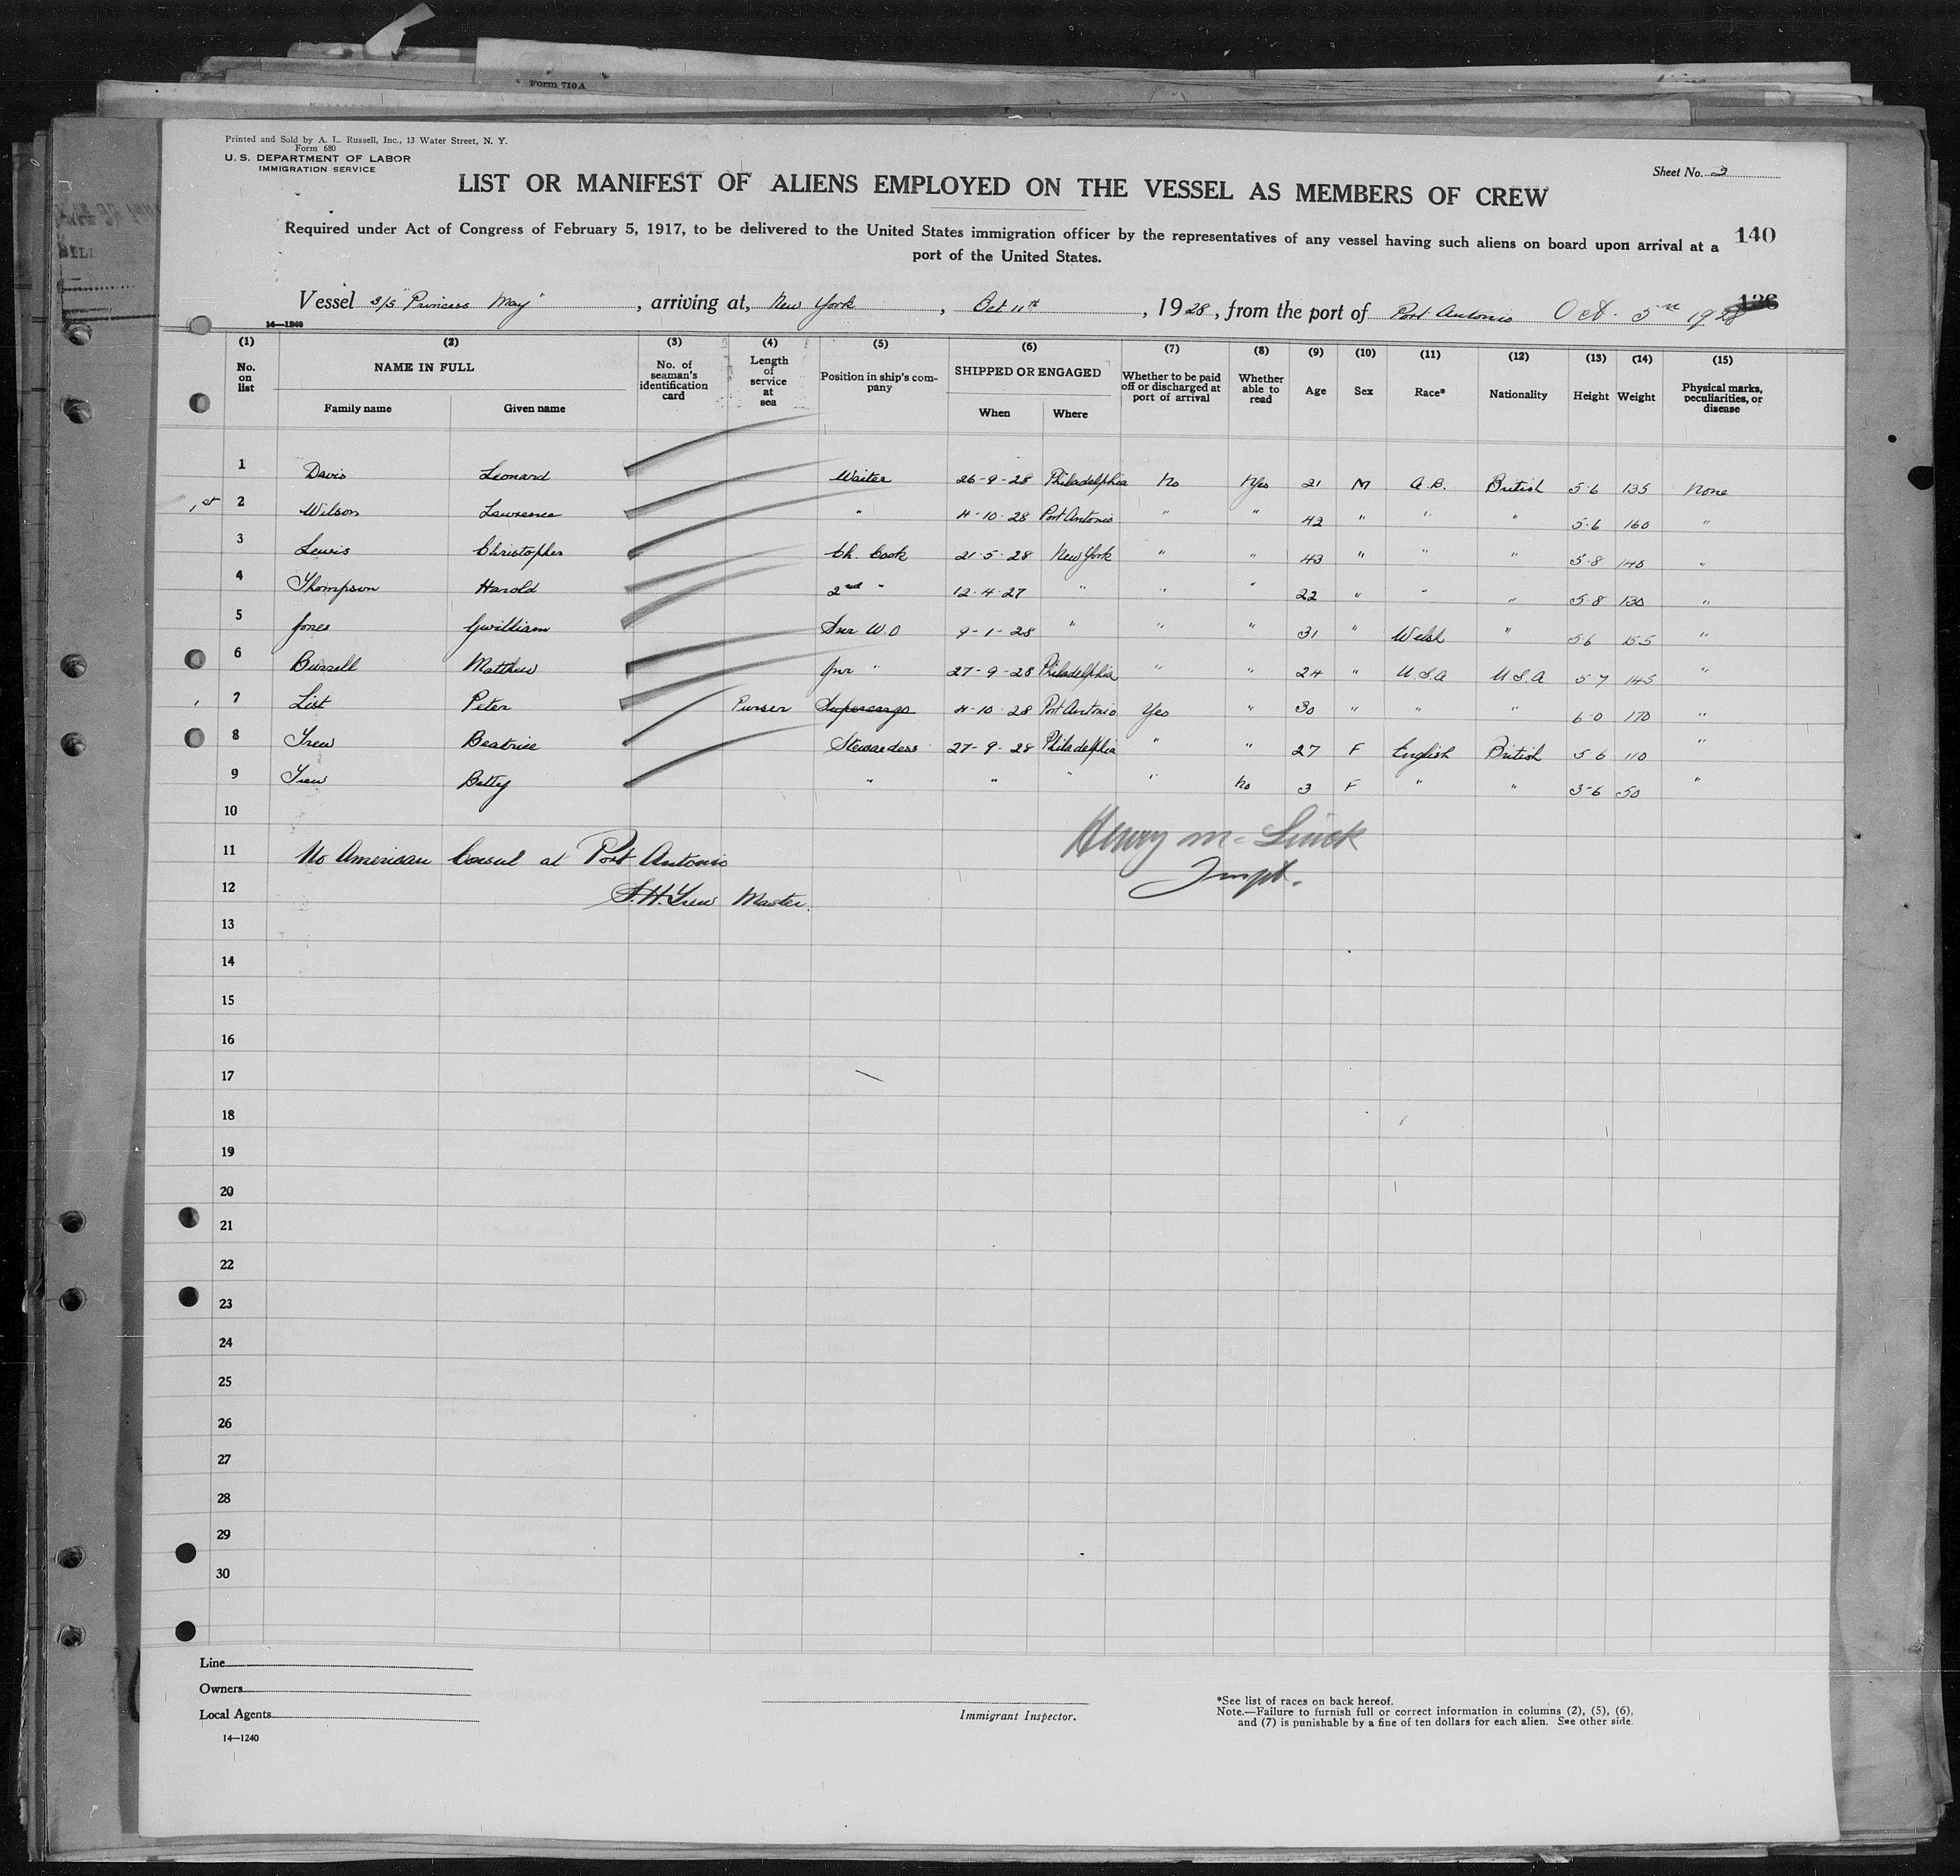 Form 710A
Printed and Sold by A. L. Russell, Inc., 13 Water Street, N. Y.
Form 680
U. S. DEPARTMENT OF LABOR
IMMIGRATION SERVICE
Sheet No. 2
LIST OR MANIFEST OF ALIENS EMPLOYED ON THE VESSEL AS MEMBERS OF CREW
Required under Act of Congress of February 5, 1917, to be delivered to the United States immigration officer by the representatives of any vessel having such aliens on board upon arrival at a
port of the United States.
140
Vessel S/S "Princess May", arriving at, New York, Oct 11th, 1928, from the port of Port Antonio Oct. 5th 1928
14—1240
(1) (2) (3) (4) (5) (6) (7) (8) (9) (10) (11) (12) (13) (14) (15)
No. on list NAME IN FULL Family name Given name No. of seaman's identification card Length of service at sea Position in ship's company SHIPPED OR ENGAGED When Where Whether to be paid off or discharged at port of arrival Whether able to read Age Sex Race* Nationality Height Weight Physical marks, peculiarities, or disease
1 Davis Leonard Waiter 26-9-28 Philadelphia No Yes 21 M A.B. British 5-6 135 None
1st 2 Wilson Lawrence " 4-10-28 Port Antonio " " 42 " " " 5-6 160 "
3 Lewis Christopher Ch. Cook 21-5-28 New York " " 43 " " " 5-8 140 "
4 Thompson Harold 2nd " 12-4-27 " " " 22 " " " 5-8 130 "
5 Jones Gwilliam Snr W.O 9-1-28 " " " 31 " Welsh " 5-6 155 "
6 Burrell Matthew Jnr " 27-9-28 Philadelphia " " 24 " U.S.A U.S.A 5-7 145 "
7 List Peter Purser Supercargo 4-10-28 Port Antonio Yes " 30 " " " 6-0 170 "
8 Trew Beatrice Stewardess 27-9-28 Philadelphia " " 27 F English British 5-6 110 "
9 Trew Betty " " " " No 3 F " " 3-6 50 "
10
11 No American Consul at Port Antonio
12 S.H. Trew Master.
Henry M-
Inspt.
13
14
15
16
17
18
19
20
21
22
23
24
25
26
27
28
29
30
Line
Owners
Local Agents
14—1240
Immigrant Inspector.
*See list of races on back hereof.
Note.—Failure to furnish full or correct information in columns (2), (5), (6),
and (7) is punishable by a fine of ten dollars for each alien. See other side.